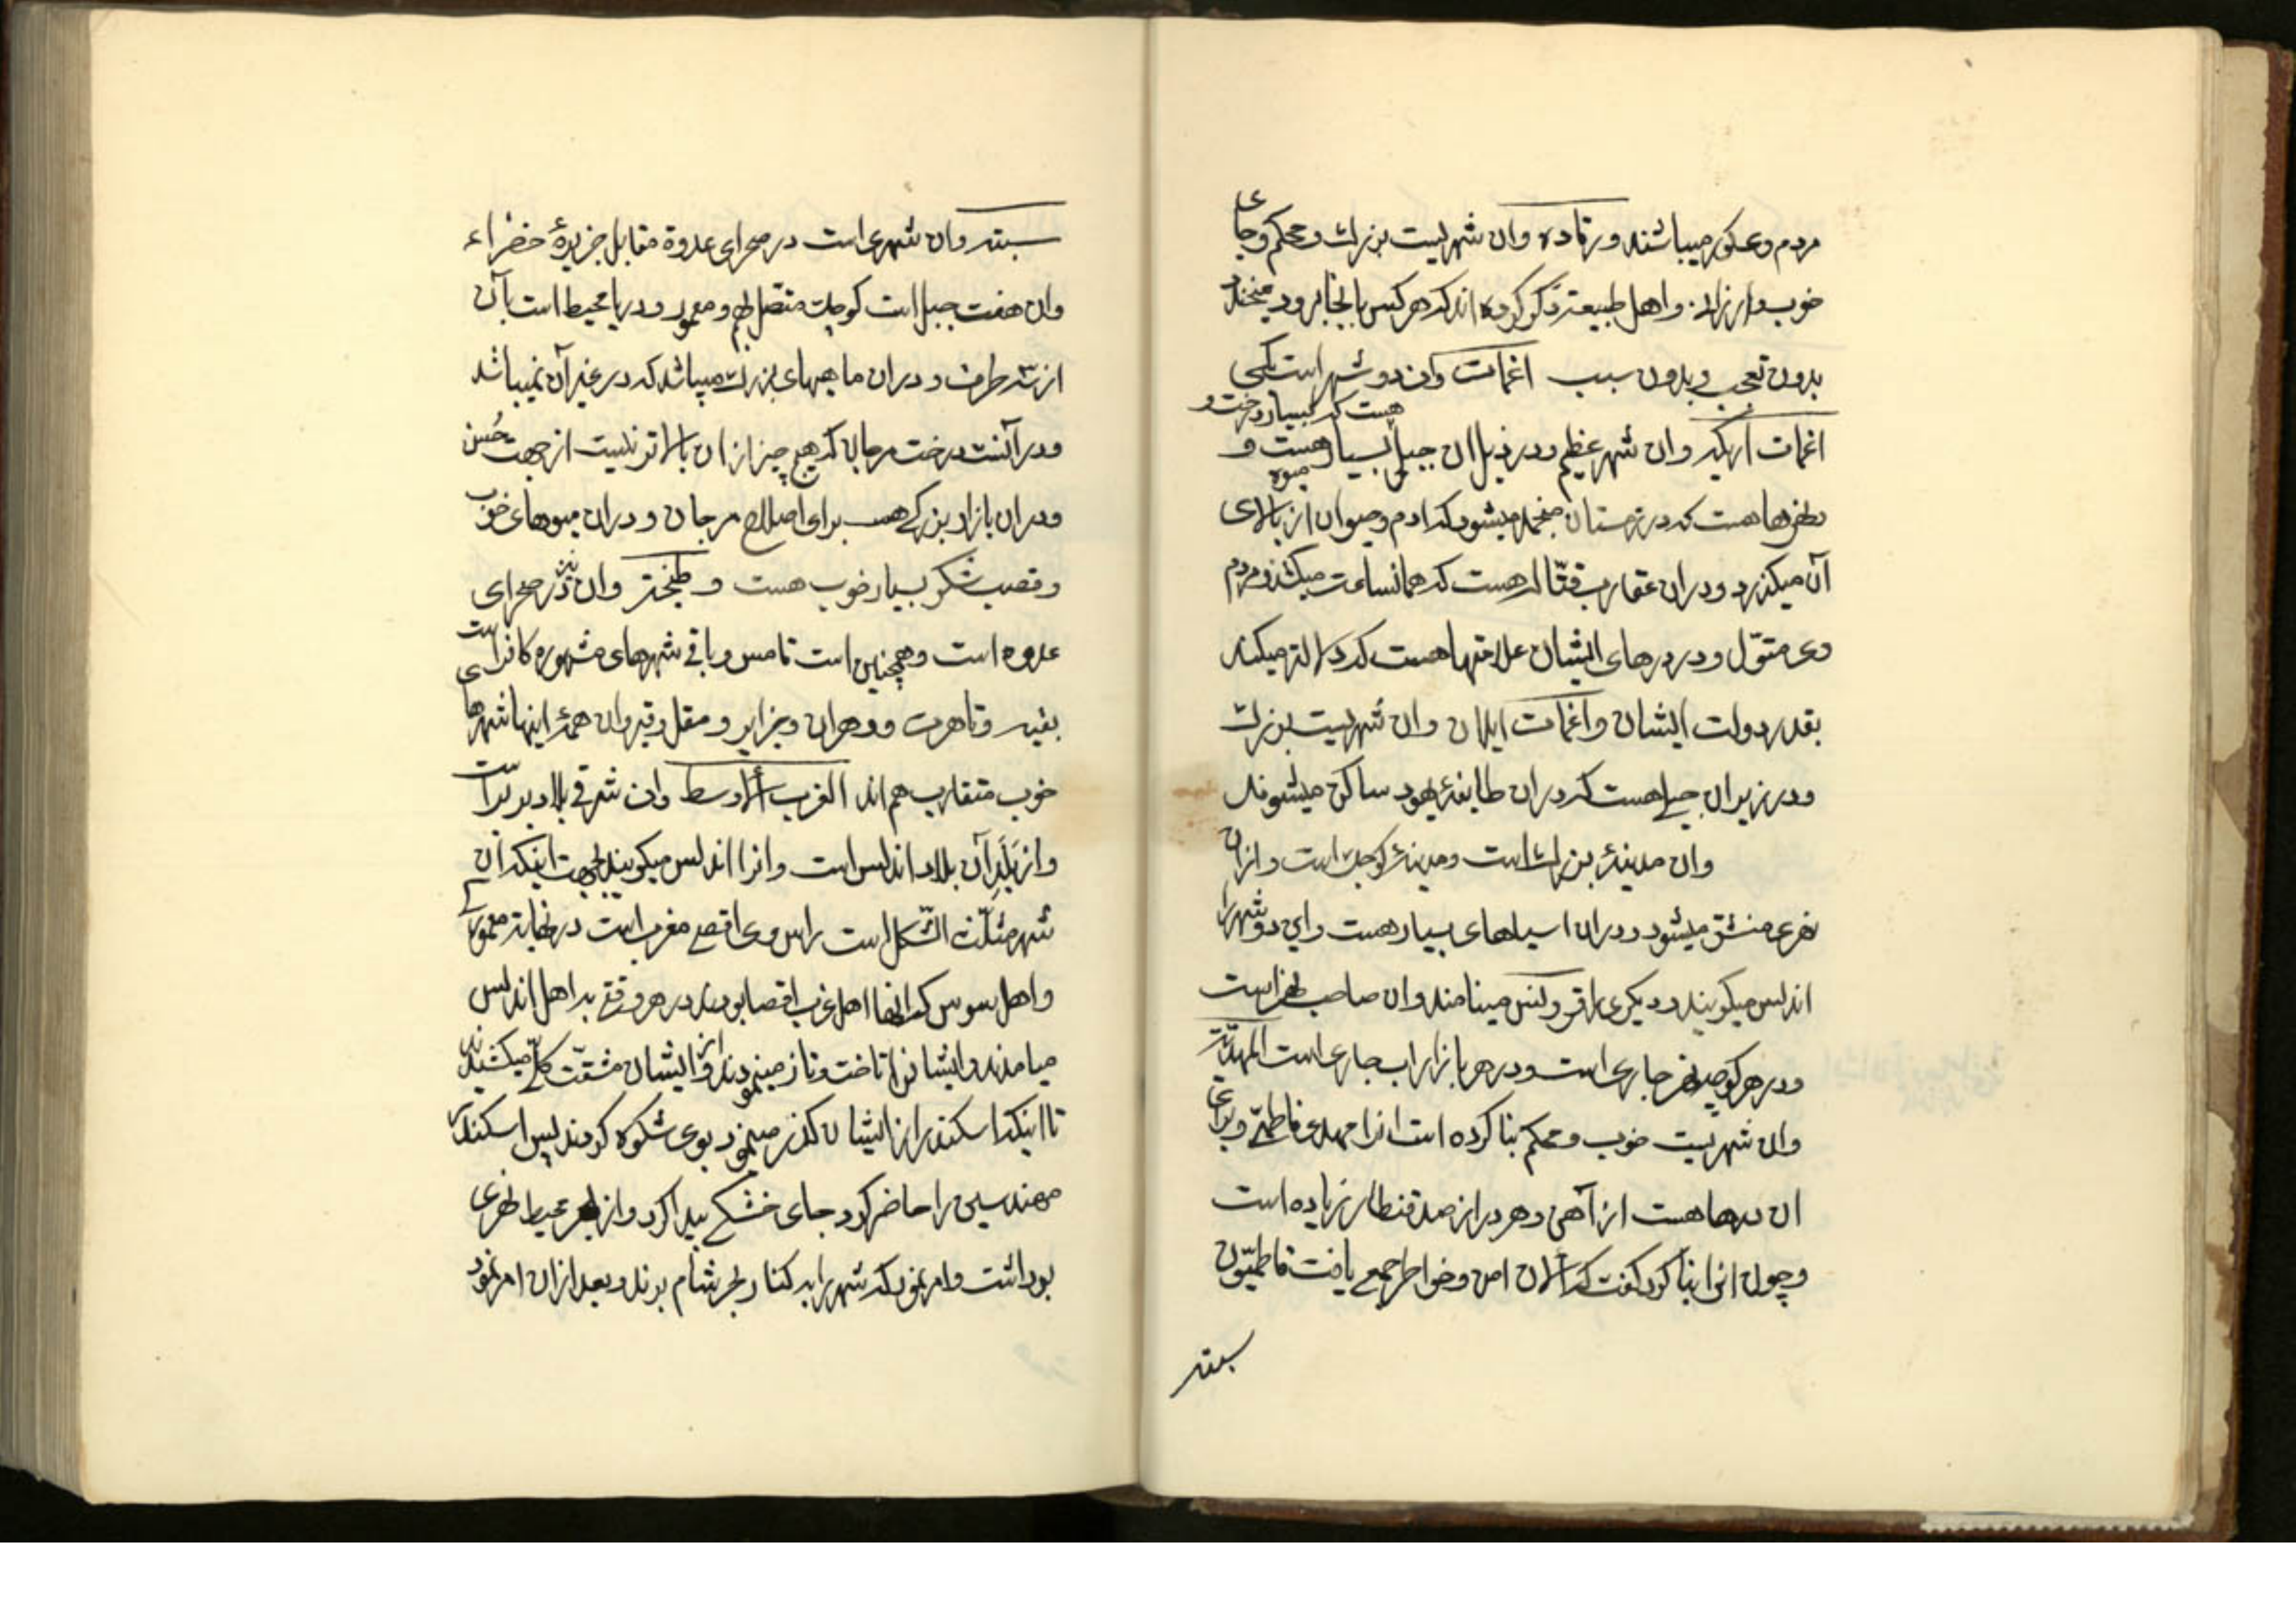 مردم وی میباشند ورقاده وان شهریست بزرگ و محکم وجای
خوب وارزان. واهل طبیعة ذکر کرده اند که هرکس بانجا برود میخندد
بدون تعجب وبدون سبب اغمات وان دو شهر است یکی
هست که بسیار درخت و
اغمات اریکه وان شهر عظیم ودر ذیل ان جبل بسیار هست و
میوه
نهرها هست که در زمستان منجمد میشود که ادم وحیوان از بالای
آن میکذرد ودران عقارب قتّاله هست که همانساعت میکشد ومردم
وی متموّل ودر درهای ایشان علامتها هست که دلالة میکند
بقدر دولت ایشان واغمات ایلان وان شهریست بزرگ
ودر زیر ان جبلی هست که دران طایفهٔ یهود ساکن میشوند
وان مدینهٔ بزرگ است ومدینهٔ کوچک است وازان
نهری منشق میشود ودران اسیلهای بسیار هست واین دو شهر را
اندلس میکویند ودیکری را مینامند وان صاحب نهر است
ودر هر کوچه نهر جاری است ودر هر بازار اب جاری است المهدیّة
وان شهریست خوب ومحکم بنا کرده است انرا مهدی فاطمی وبرای
ان درها هست از آهن وهر در از صد قنطار زیاده است
وچون انرا بنا کرد کفت که الان امن وخواطر جمعی یافت فاطمیّون
سبته
سبته وان شهری است در صحرای عدوة مقابل جزیرهٔ خضراء
وان هفت جبل است کوچک متصل بهم ومعمور ودریا محیط است بآن
از سه طرف ودران ماهیهای بزرگ میباشد که در غیر آن نمیباشد
ودر آنست درخت مرجان که هیچ چیز ازان بالاتر نیست از جهت حُسن
ودران بازار بزرکی هست برای اصلاح مرجان ودران میوهای خوب
وقصب شکر بسیار خوب هست وطنجة وان نیز در صحرای
عدوه است وهمچنین است فامس وباقی شهرهای مشهوره کافراست
بقیه وتاهرت ووهران وجزایر ومقل وقیروان همهٔ اینها شهرها
خوب متقارب هم اند الغرب الاوسط وان شرقی بلاد بربر است
واز بَلَدِ آن بلاد اندلس است وانرا اندلس میکویند بجهت اینکه آن
شهر مثلّث الشکل است راس وی اقصی مغرب است در نهایة معموری
واهل سوس که انها اهل غرب اقصا بودند در هر وقتی به اهل اندلس
میامدند وایشانرا تاخت وتاز مینمودند واز ایشان مشقّت کلّی میکشیدند
تا اینکه اسکندر از ایشان کذر مینمود بوی شکوه کردند پس اسکندر
مهندسین را حاضر کرد جای خشکی پیدا کرد واز بحر محیط نهری
برداشت وامر نمود که شهر را به کنار بحر شام برند وبعد ازان امر نمود